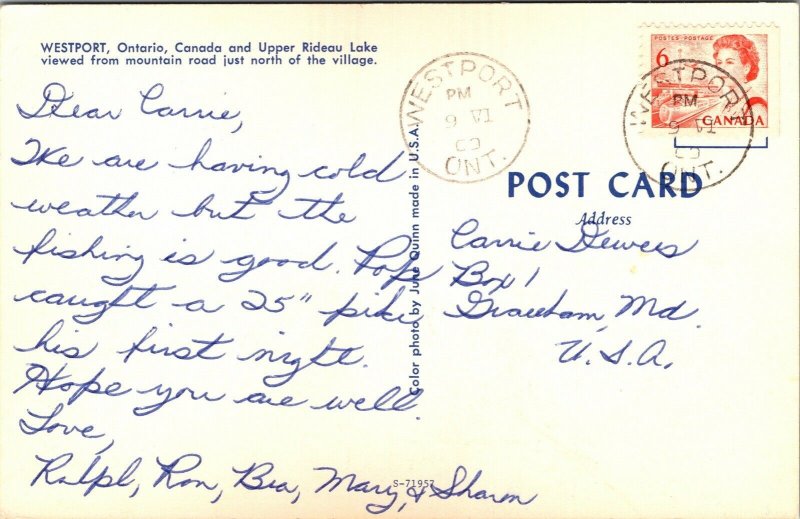 WESTPORT, Ontario, Canada and Upper Rideau Lake
viewed from mountain road just north of the village.
Dear Carrie,
We are having cold
weather but the
fishing is good. Pop
caught a 25" pike
his first night.
Hope you are well.
Love,
Ralph, Ron, Bea, Mary, & Sharon
Color photo by June Quinn made in U.S.A.
S-71957
WESTPORT
PM
9 VI
ONT.
POSTES POSTAGE
6
CANADA
WESTPORT
PM
9 VI
ONT.
POST CARD
Address
Carrie Dewees
Box 1
Graceham, Md.
U.S.A.